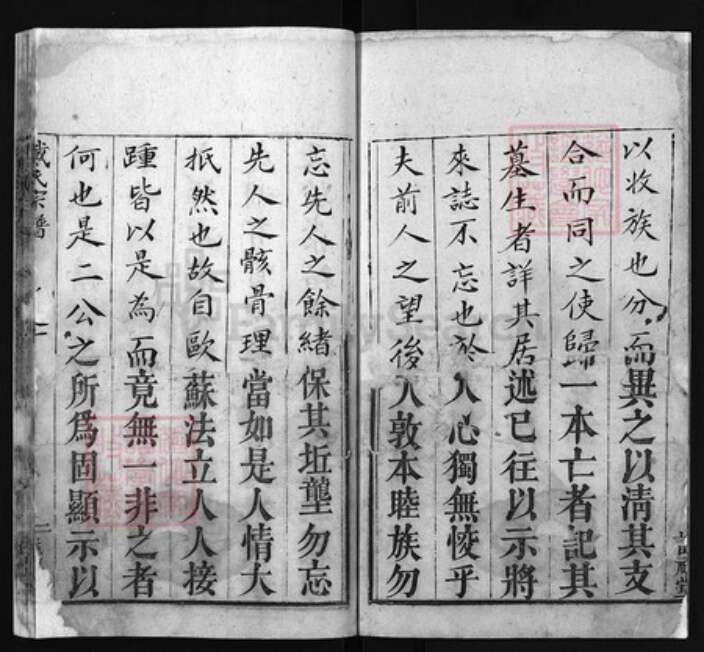 以收族也分而異之以清其支
合而同之使歸一本亡者記其
墓生者詳其居述已往以示將
來誌不忘也於人心獨無恔乎
夫前人之望後人敦本睦族勿
忘先人之餘緒保其坵壟勿忘
先人之骸骨理當如是人情大
抵然也故自歐蘇法立人人接
踵皆以是為而竟無一非之者
何也是二公之所爲固顯示以
戴氏宗譜